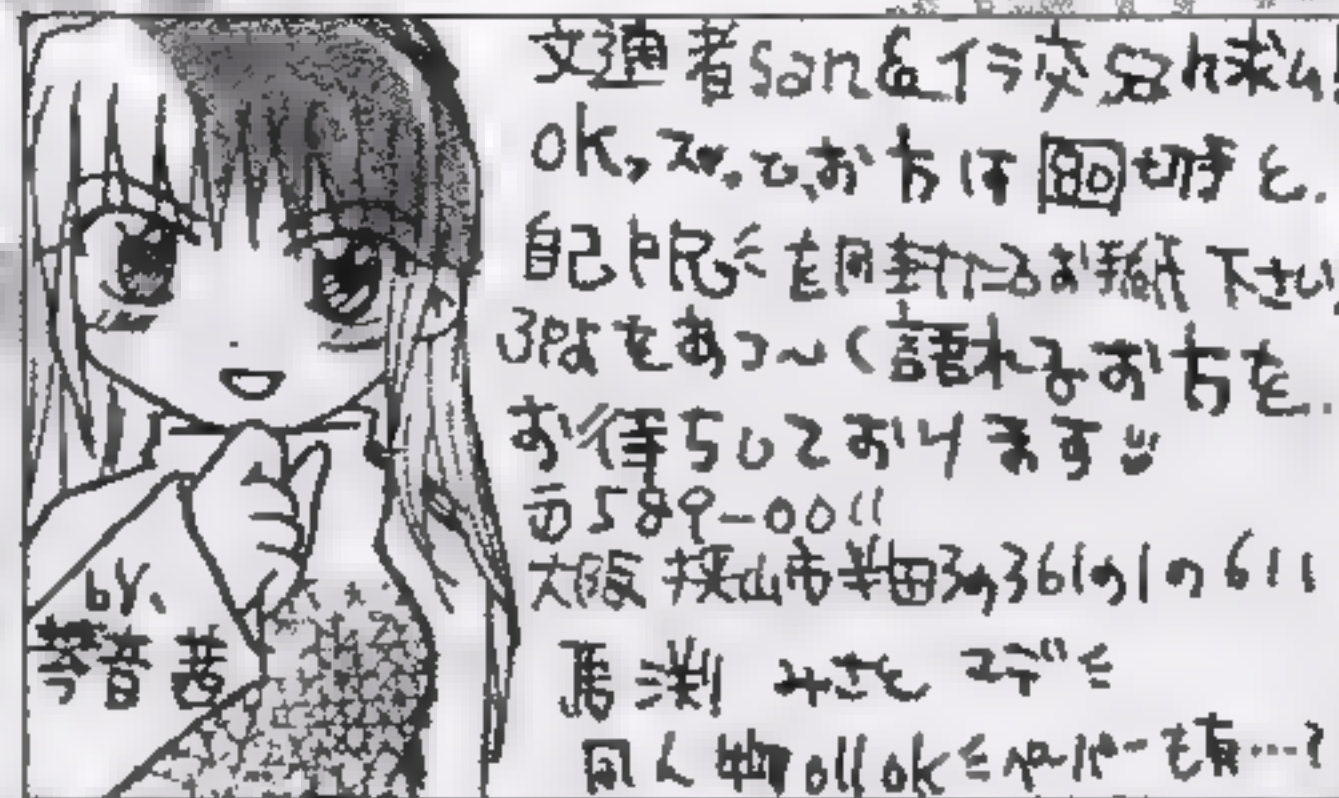 文通者san&イラ交san求ム!
OK,ズッ。とお方は80切手と.
自己PR を同封したお手紙下さい
をあつ〜く語れるお方を..
お待ちしております
〒589-0011
大阪狭山市半田3の361の1の611
馬渕 みさと マデ
同人物all ok ペーパーも有…?
by.
琴音 茜